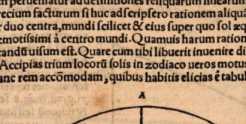 perueniatur ad dimensiones reliquarum
recium facturum si huc adscripsero rationem aliqu
r duo centra, mundi scilicet & eius super quo sol æq
emotissimi à centro mundi. Quamuis harum ration
randũ uisum est. Quare cum tibi libuerit inuenire di
Accipias trium locorũ solis in zodiaco ueros motus
anc rem accõmodam, quibus habitis elicias é tabul
A